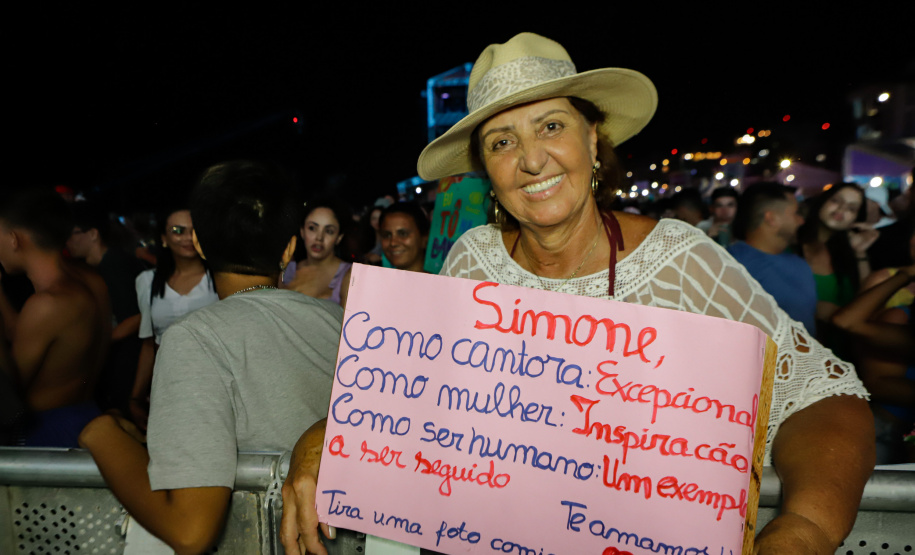 Simone,
Como cantora: Excepcional
Como mulher: Inspiração
Como ser humano: Um exemplo
a ser seguido
Tira uma foto comigo
Te amamos